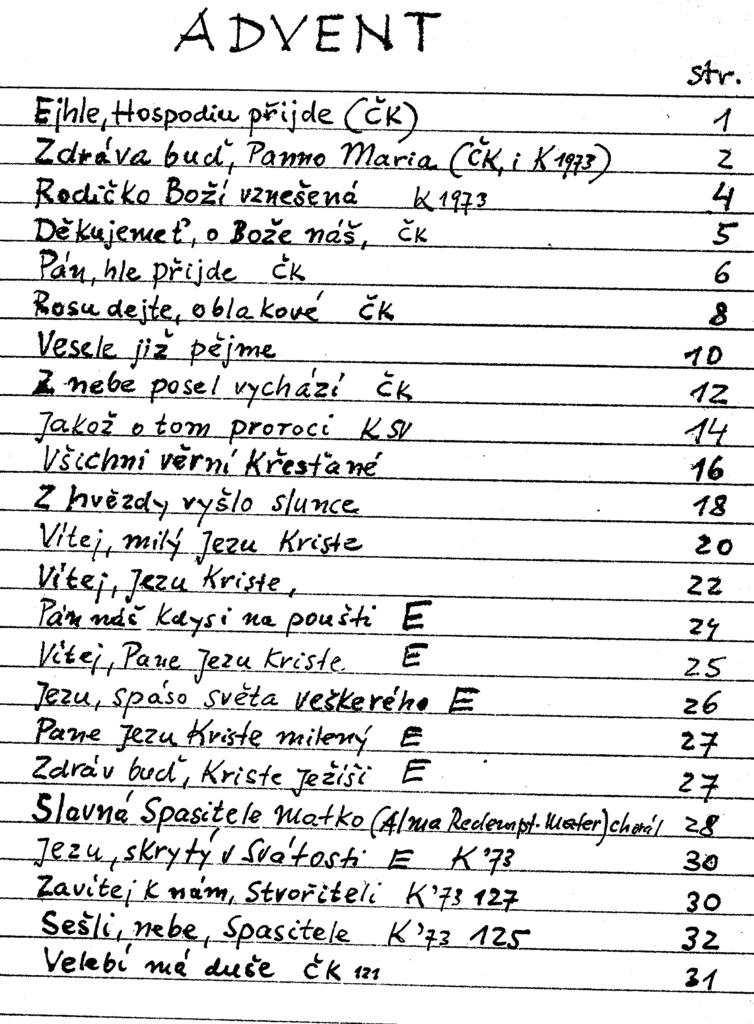 ADVENT
str.
Ejhle, Hospodin přijde (ČK) 1
Zdráva buď, Panno Maria (ČK, i K 1973) 2
Rodičko Boží vznešená K 1973 4
Děkujemeť, o Bože náš, ČK 5
Pán, hle přijde ČK 6
Rosu dejte, oblakové ČK 8
Vesele již pějme 10
Z nebe posel vychází ČK 12
Jakož o tom proroci K SV 14
Všichni věrní Křesťané 16
Z hvězdy vyšlo slunce 18
Vítej, milý Jezu Kriste 20
Vítej, Jezu Kriste, 22
Pán náš kdysi na poušti E 24
Vítej, Pane Jezu Kriste E 25
Jezu, spáso světa veškerého E 26
Pane Jezu Kriste milený E 27
Zdráv buď, Kriste Ježíši E 27
Slavná Spasitele Matko (Alma Redempt. Mater) chorál 28
Jezu, skrytý v Svátosti E K'73 30
Zavítej k nám, Stvořiteli K'73 127 30
Sešli, nebe, Spasitele K'73 125 32
Velebí má duše ČK 121 31